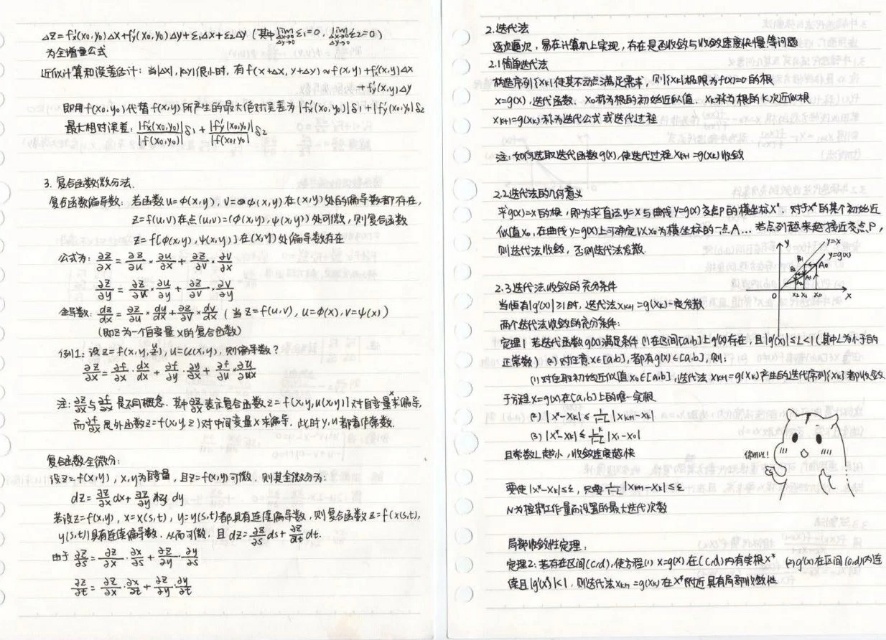 ΔZ=f'x(x₀,y₀)Δx+f'y(x₀,y₀)Δy+ε₁Δx+ε₂Δy (其中lim ε₁=0, lim ε₂=0)
为全增量公式
近似计算和误差估计: 当|Δx|,|Δy|很小时,有f(x+Δx,y+Δy)≈f(x,y)+f'x(x,y)Δx
+f'y(x,y)Δy
即用f(x₀,y₀)代替f(x,y)所产生的最大绝对误差为|f'x(x₀,y₀)|δ₁+|f'y(x₀,y₀)|δ₂
最大相对误差: |f'x(x₀,y₀)|/|f(x₀,y₀)| δ₁+|f'y(x₀,y₀)|/|f(x₀,y₀)| δ₂
3. 复合函数微分法.
复合函数偏导数: 若函数u=φ(x,y), v=φ(x,y)在(x,y)处的偏导数都存在,
z=f(u,v)在点(u,v)=(φ(x,y),ψ(x,y))处可微,则复合函数
z=f[φ(x,y),ψ(x,y)]在(x,y)处偏导数存在
公式为: ∂z/∂x=∂z/∂u·∂u/∂x+∂z/∂v·∂v/∂x
∂z/∂y=∂z/∂u·∂u/∂y+∂z/∂v·∂v/∂y
全导数: (当z=f(u,v), u=φ(x), v=ψ(x))
(即z为一个自变量x的复合函数)
例1: 设z=f(x,y,z), u=u(x,y), 则偏导数?
注: ∂z/∂x与∂f/∂x是不同概念.其中∂z/∂x表示复合函数z=f(x,y,u(x,y))对自变量x求偏导,
而∂f/∂x是外函数z=f(x,y,z)对中间变量x求偏导,此时y,u都看作常数.
复合函数全微分:
设z=f(x,y), x,y为自变量,且z=f(x,y)可微,则其全微分为:
dz=∂z/∂x dx+∂z/∂y dy
若设z=f(x,y), x=x(s,t), y=y(s,t)都具有连续偏导数,则复合函数z=f(x(s,t),
y(s,t))具有连续偏导数,从而可微,且dz=∂z/∂s ds+∂z/∂t dt.
由于∂z/∂s=∂z/∂x·∂x/∂s+∂z/∂y·∂y/∂s
∂z/∂t=∂z/∂x·∂x/∂t+∂z/∂y·∂y/∂t
2.迭代法
逐次逼近,易在计算机上实现,存在是否收敛与收敛速度快慢等问题
2.1简单迭代法
构造序列{xk}使其不动点满足需求,则{xk}极限为f(x)=0的根
x=g(x),迭代函数. x₀称为根的初始近似值. xk称为根的k次近似根
xk+1=g(xk)称为迭代公式或迭代过程
注:如何选取迭代函数g(x),使迭代过程xk+1=g(xk)收敛
2.2迭代法的几何意义
求g(x)=x的根,即为求直线y=x与曲线y=g(x)交点P的横坐标x*.对于x*的某个初始近
似值x₀,在曲线y=g(x)上可确定以x₀为横坐标的一点A...若点列越来越接近交点P,
则迭代法收敛,否则迭代法发散
y
y=x
y=g(x)
A₀
0 x₂ x₁ x₀ x
2.3迭代法收敛的充分条件
当恒有|g'(x)|≥1时,迭代法xk+1=g(xk)一定发散
两个迭代法收敛的充分条件:
定理1 若迭代函数g(x)满足条件(1)在区间[a,b]上g'(x)存在,且|g'(x)|≤L<1(其中L为小于1的
正常数) (2)对任意x∈[a,b],都有g(x)∈[a,b],则:
(1)对任取初始近似值x₀∈[a,b],迭代法xk+1=g(xk)产生的迭代序列{xk}都收敛
于方程x=g(x)在[a,b]上的唯一实根
(2) |x*-xk|≤ |xk+1-xk|
(3) |x*-xk|≤ |x₁-x₀|
且常数L越小,收敛速度越快
要使|x*-xk|≤ε,只要 |xk+1-xk|≤ε
N为控制工作量而设置的最大迭代次数
局部收敛性定理:
定理2:若存在区间(c,d),使方程(1) x=g(x)在(c,d)内有实根x* (2)g'(x)在区间(c,d)内连
续且|g'(x*)|<1,则迭代法xk+1=g(xk)在x*附近具有局部收敛性